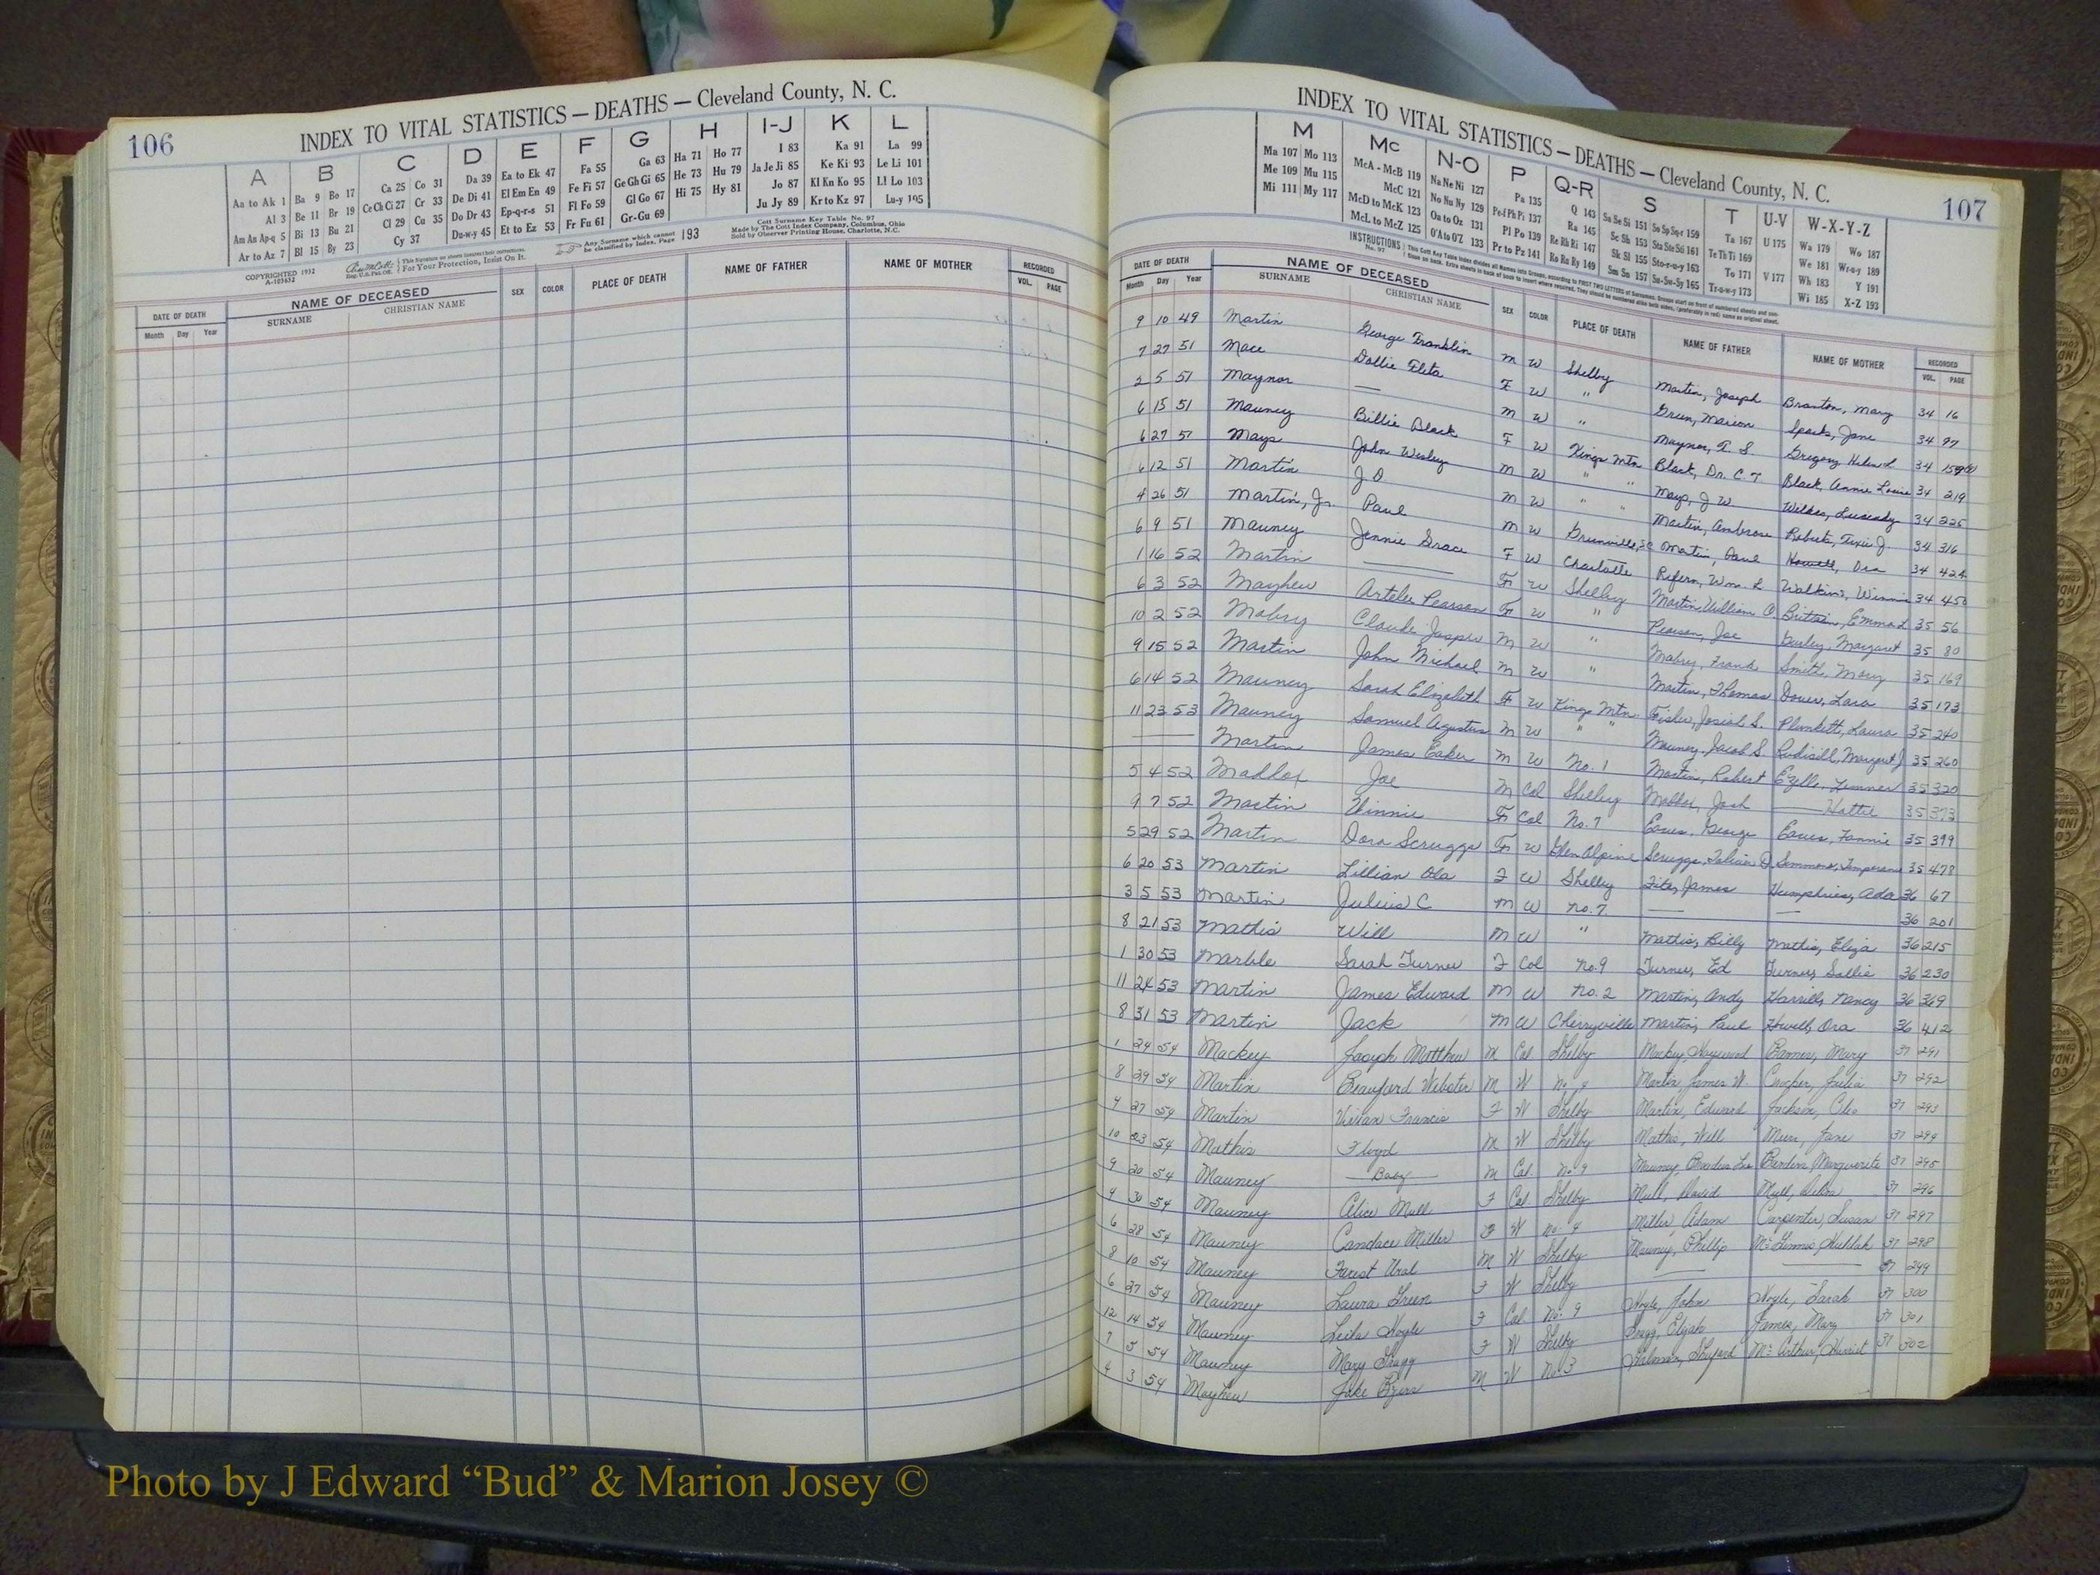 106
INDEX TO VITAL STATISTICS — DEATHS — Cleveland County, N. C.
A B C D E F G H I-J K L
Aa to Ak 1 Ba 9 Bo 17 Ca 25 Co 31 Da 39 Ea to Ek 47 Fa 55 Ga 63 Ha 71 Ho 77 I 83 Ka 91 La 99
Al 3 Be 11 Br 19 Ce Ch Ci 27 Cr 33 De Di 41 El Em En 49 Fe Fi 57 Ge Gh Gi 65 He 73 Hu 79 Ja Je Ji 85 Ke Ki 93 Le Li 101
Am An Ap-q 5 Bi 13 Bu 21 Cl 29 Cu 35 Do Dr 43 Ep-q-r-s 51 Fl Fo 59 Gl Go 67 Hi 75 Hy 81 Jo 87 Kl Kn Ko 95 Ll Lo 103
Ar to Az 7 Bl 15 By 23 Cy 37 Du-w-y 45 Et to Ez 53 Fr Fu 61 Gr-Gu 69 Ju Jy 89 Kr to Kz 97 Lu-y 105
COPYRIGHTED 1932
A-103632
For Your Protection, Insist On It.
Any Surname which cannot be classified by Index, Page 193
Cott Surname Key Table No. 97
Made by The Cott Index Company, Columbus, Ohio
Sold by Observer Printing House, Charlotte, N.C.
DATE OF DEATH NAME OF DECEASED SEX COLOR PLACE OF DEATH NAME OF FATHER NAME OF MOTHER RECORDED
Month Day Year SURNAME CHRISTIAN NAME VOL. PAGE
INDEX TO VITAL STATISTICS — DEATHS — Cleveland County, N. C.
107
M Mc N-O P Q-R S T U-V W-X-Y-Z
Ma 107 Mo 113 McA - McB 119 Na Ne Ni 127 Pa 135 Q 143 Sa Se Si 151 So Sp Sq-r 159 Ta 167 U 175 Wa 179 Wo 187
Me 109 Mu 115 McC 121 No Nu Ny 129 Pe-f Ph Pi 137 Ra 145 Sc Sh 153 Sta Ste Sti 161 Te Th Ti 169 V 177 We 181 Wr-u-y 189
Mi 111 My 117 McD to McK 123 Oa to Oz 131 Pl Po 139 Re Rh Ri 147 Sk Sl 155 Sto-r-u-y 163 To 171 Wh 183 Y 191
McL to McZ 125 O'A to O'Z 133 Pr to Pz 141 Ro Ru Ry 149 Sm Sn 157 Su-Sw-Sy 165 Tr-u-w-y 173 Wi 185 X-Z 193
INSTRUCTIONS
DATE OF DEATH NAME OF DECEASED SEX COLOR PLACE OF DEATH NAME OF FATHER NAME OF MOTHER RECORDED
Month Day Year SURNAME CHRISTIAN NAME VOL. PAGE
9 10 49 Martin George Franklin M W Shelby Martin, Joseph Branton, Mary 34 16
7 27 51 Mace Dollie Fleta F W " Green, Marion Sparks, Jane 34 97
2 5 51 Maynor — M W " Maynor, T. S. Gregory Helen L. 34
6 15 51 Mauney Billie Black F W Kings Mtn Black, Dr. C. T Black, Annie Louise 34 219
6 27 51 Mays John Wesley M W " " Mays, J W Wilkes, 34 225
6 12 51 Martin J O M W " " Martin, Ambrose Roberts, Texie J. 34 316
4 26 51 Martin, Jr. Paul M W Greenville, SC Martin, Paul Howell, Ora 34 424
6 9 51 Mauney Jennie Grace F W Charlotte Wm L Watkins, Winnie 34 450
1 16 52 Martin — F W Shelby Martin, William O. Brittain, Emma L 35 56
6 3 52 Mayhew Pearson F W " Pearson, Joe Margaret 35 80
10 2 52 Mabry Claude Jasper M W " Mabry, Frank Smith, Mary 35 169
9 15 52 Martin John Michael M W " Martin, Thomas Lara 35 173
6 14 52 Mauney Sarah Elizabeth F W Kings Mtn Fisher, Josiah S. Plunkett, Laura 35 240
11 23 53 Mauney Samuel Agustus M W " Mauney, Jacob S. Rudisill, Margaret J 35 260
— Martin James Eaker M W No. 1 Martin, Robert 35 320
5 4 52 Joe M Col Shelby — Hattie 35 373
9 7 52 Martin Winnie F Col No. 7 Eaves, George Eaves, Fannie 35 399
5 29 52 Martin Dora Scruggs F W Glen Alpine Scruggs, Simmons, 35 478
6 20 53 Martin Lillian Ola F W Shelby James Humphries, Ada 36 67
3 5 53 Martin Julius C M W No. 7 — — 36 201
8 21 53 Mathis Will M W " Mathis, Billy Mathis, Eliza 36 215
1 30 53 Marble Sarah Turner F Col No. 9 Turner, Ed Turner, Sallie 36 230
11 24 53 Martin James Edward M W No. 2 Martin, Andy Harrill, Nancy 36 369
8 31 53 Martin Jack M W Cherryville Martin, Paul Howell, Ora 36 412
1 24 54 Mackey Joseph Matthew M Col. Shelby Mackey, Haywood Barnes, Mary 37 291
8 29 54 Martin Beauford Webster M W No. 4 Martin, James W. Crocker, Julia 37 292
4 27 54 Martin Vivian Francis F W Shelby Martin, Edward Jackson, Cleo 37 293
10 23 54 Mathis Floyd M W Shelby Mathis, Will Jane 37 294
9 20 54 Mauney — Baby — M Col. No 9 Mauney, Marguerite 37 295
4 30 54 Mauney Alice Mull F Col. Shelby Mull, David Mull, 37 296
6 28 54 Mauney Candace Miller F W No. 4 Miller, Adam Carpenter, Susan 37 297
8 10 54 Mauney M W Shelby Mauney, Phillip 37 298
6 27 54 Mauney Laura Green F W Shelby — — 37 299
12 14 54 Mauney Leila Hogle F Col. No. 9 Hogle, John Hogle, Sarah 37 300
7 5 54 Mauney Mary F W Shelby James, Mary 37 301
4 3 54 Mayhew Jake M W No 3 McArthur, Harriet 37 302
Photo by J Edward “Bud” & Marion Josey ©